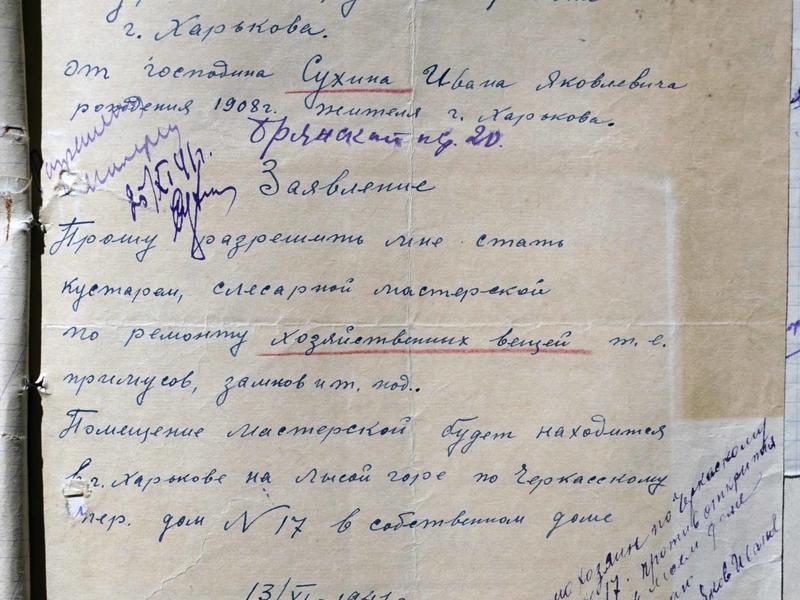 г. Харькова.
от господина Сухина Ивана Яковлевича
рождения 1908г. жителя г. Харькова.
Брянский пер. 20.
25/XI 41г.
Заявление
Прошу разрешить мне стать
кустарем, слесарной мастерской
по ремонту хозяйственных вещей т. е.
примусов, замков и т. под..
Помещение мастерской будет находится
в г. Харькове на лысой горе по Черкасскому
пер. дом N 17 в собственном доме
по Черкасскому
17. против открытия
в моем доме
13/XI - 1941